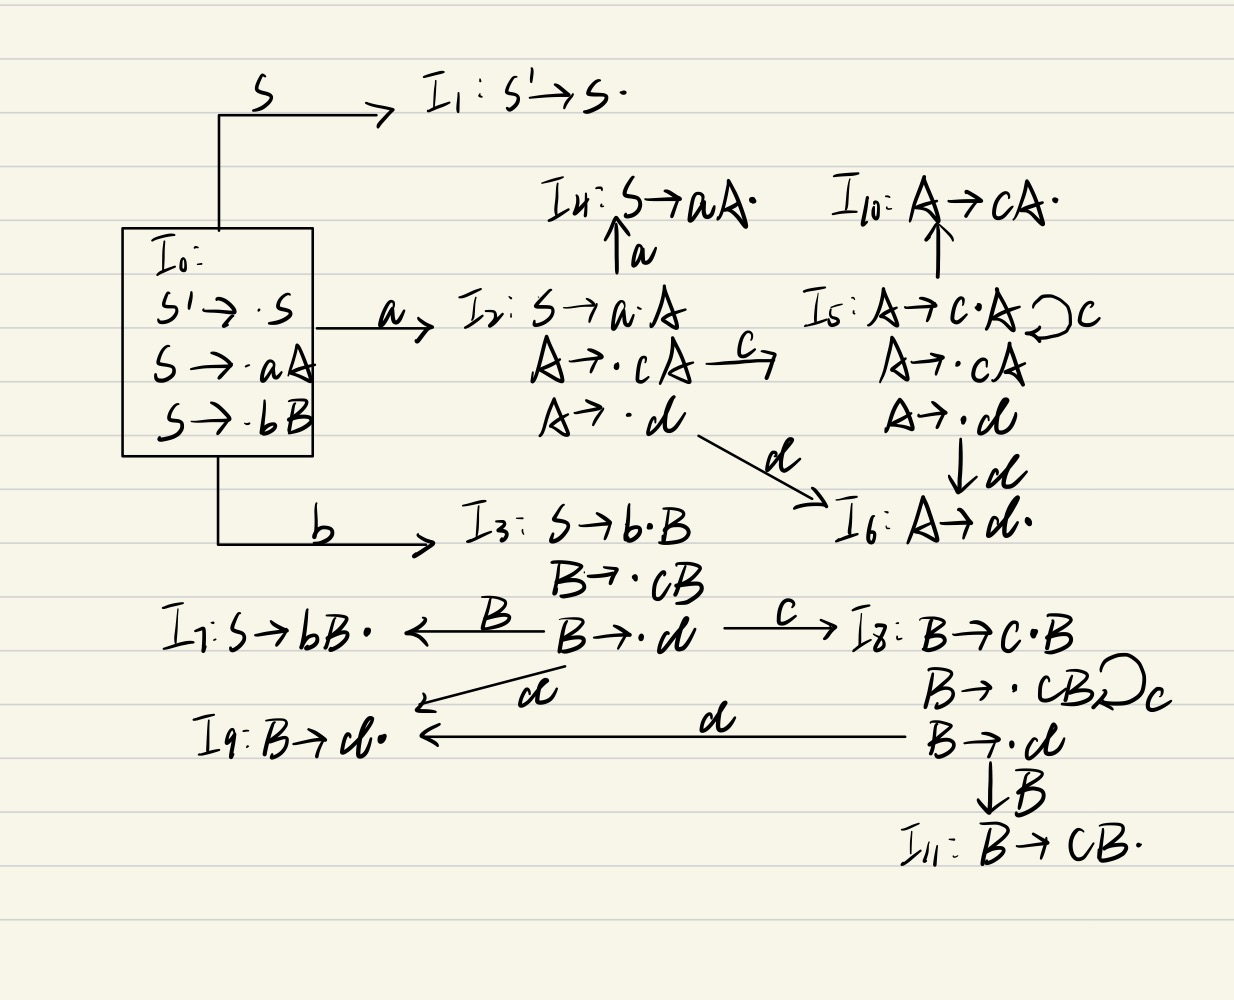 S
I₁: S'→S·
I₄: S→aA·
I₁₀: A→cA·
a
I₀:
S'→·S
S→·aA
S→·bB
a
I₂: S→a·A
A→·cA
A→·d
c
I₅: A→c·A
A→·cA
A→·d
c
d
d
I₆: A→d·
b
I₃: S→b·B
B→·cB
B→·d
I₇: S→bB·
B
c
I₈: B→c·B
B→·cB
B→·d
c
d
I₉: B→d·
d
B
I₁₁: B→cB·